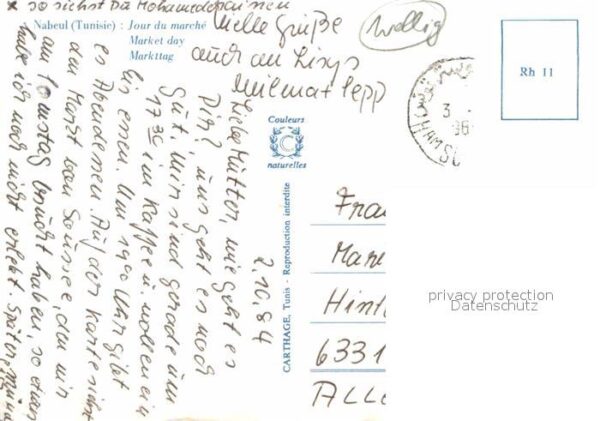 x so siehst Du Mohamedanerinnen
Nabeul (Tunisie) : Jour du marché
Market day
Markttag
viele Grüße
auch an
wellig
Rh 11
Couleurs
naturelles
CARTHAGE, Tunis - Reproduction interdite
2.10.84
Liebe Mutter, wie geht es
Dir? uns geht es noch
gut, wir sind gerade um
17 30 im Kaffee u. wollen ein
Eis essen. Um 19 00 Uhr gibt
es Abendessen. Auf der Karte siehst
den Markt von Sousse, den wir
am Sonntag besucht haben, so etwas
habe ich noch nicht erlebt. Später
Frau
Mar
Hint
6331
ALLE
privacy protection
Datenschutz